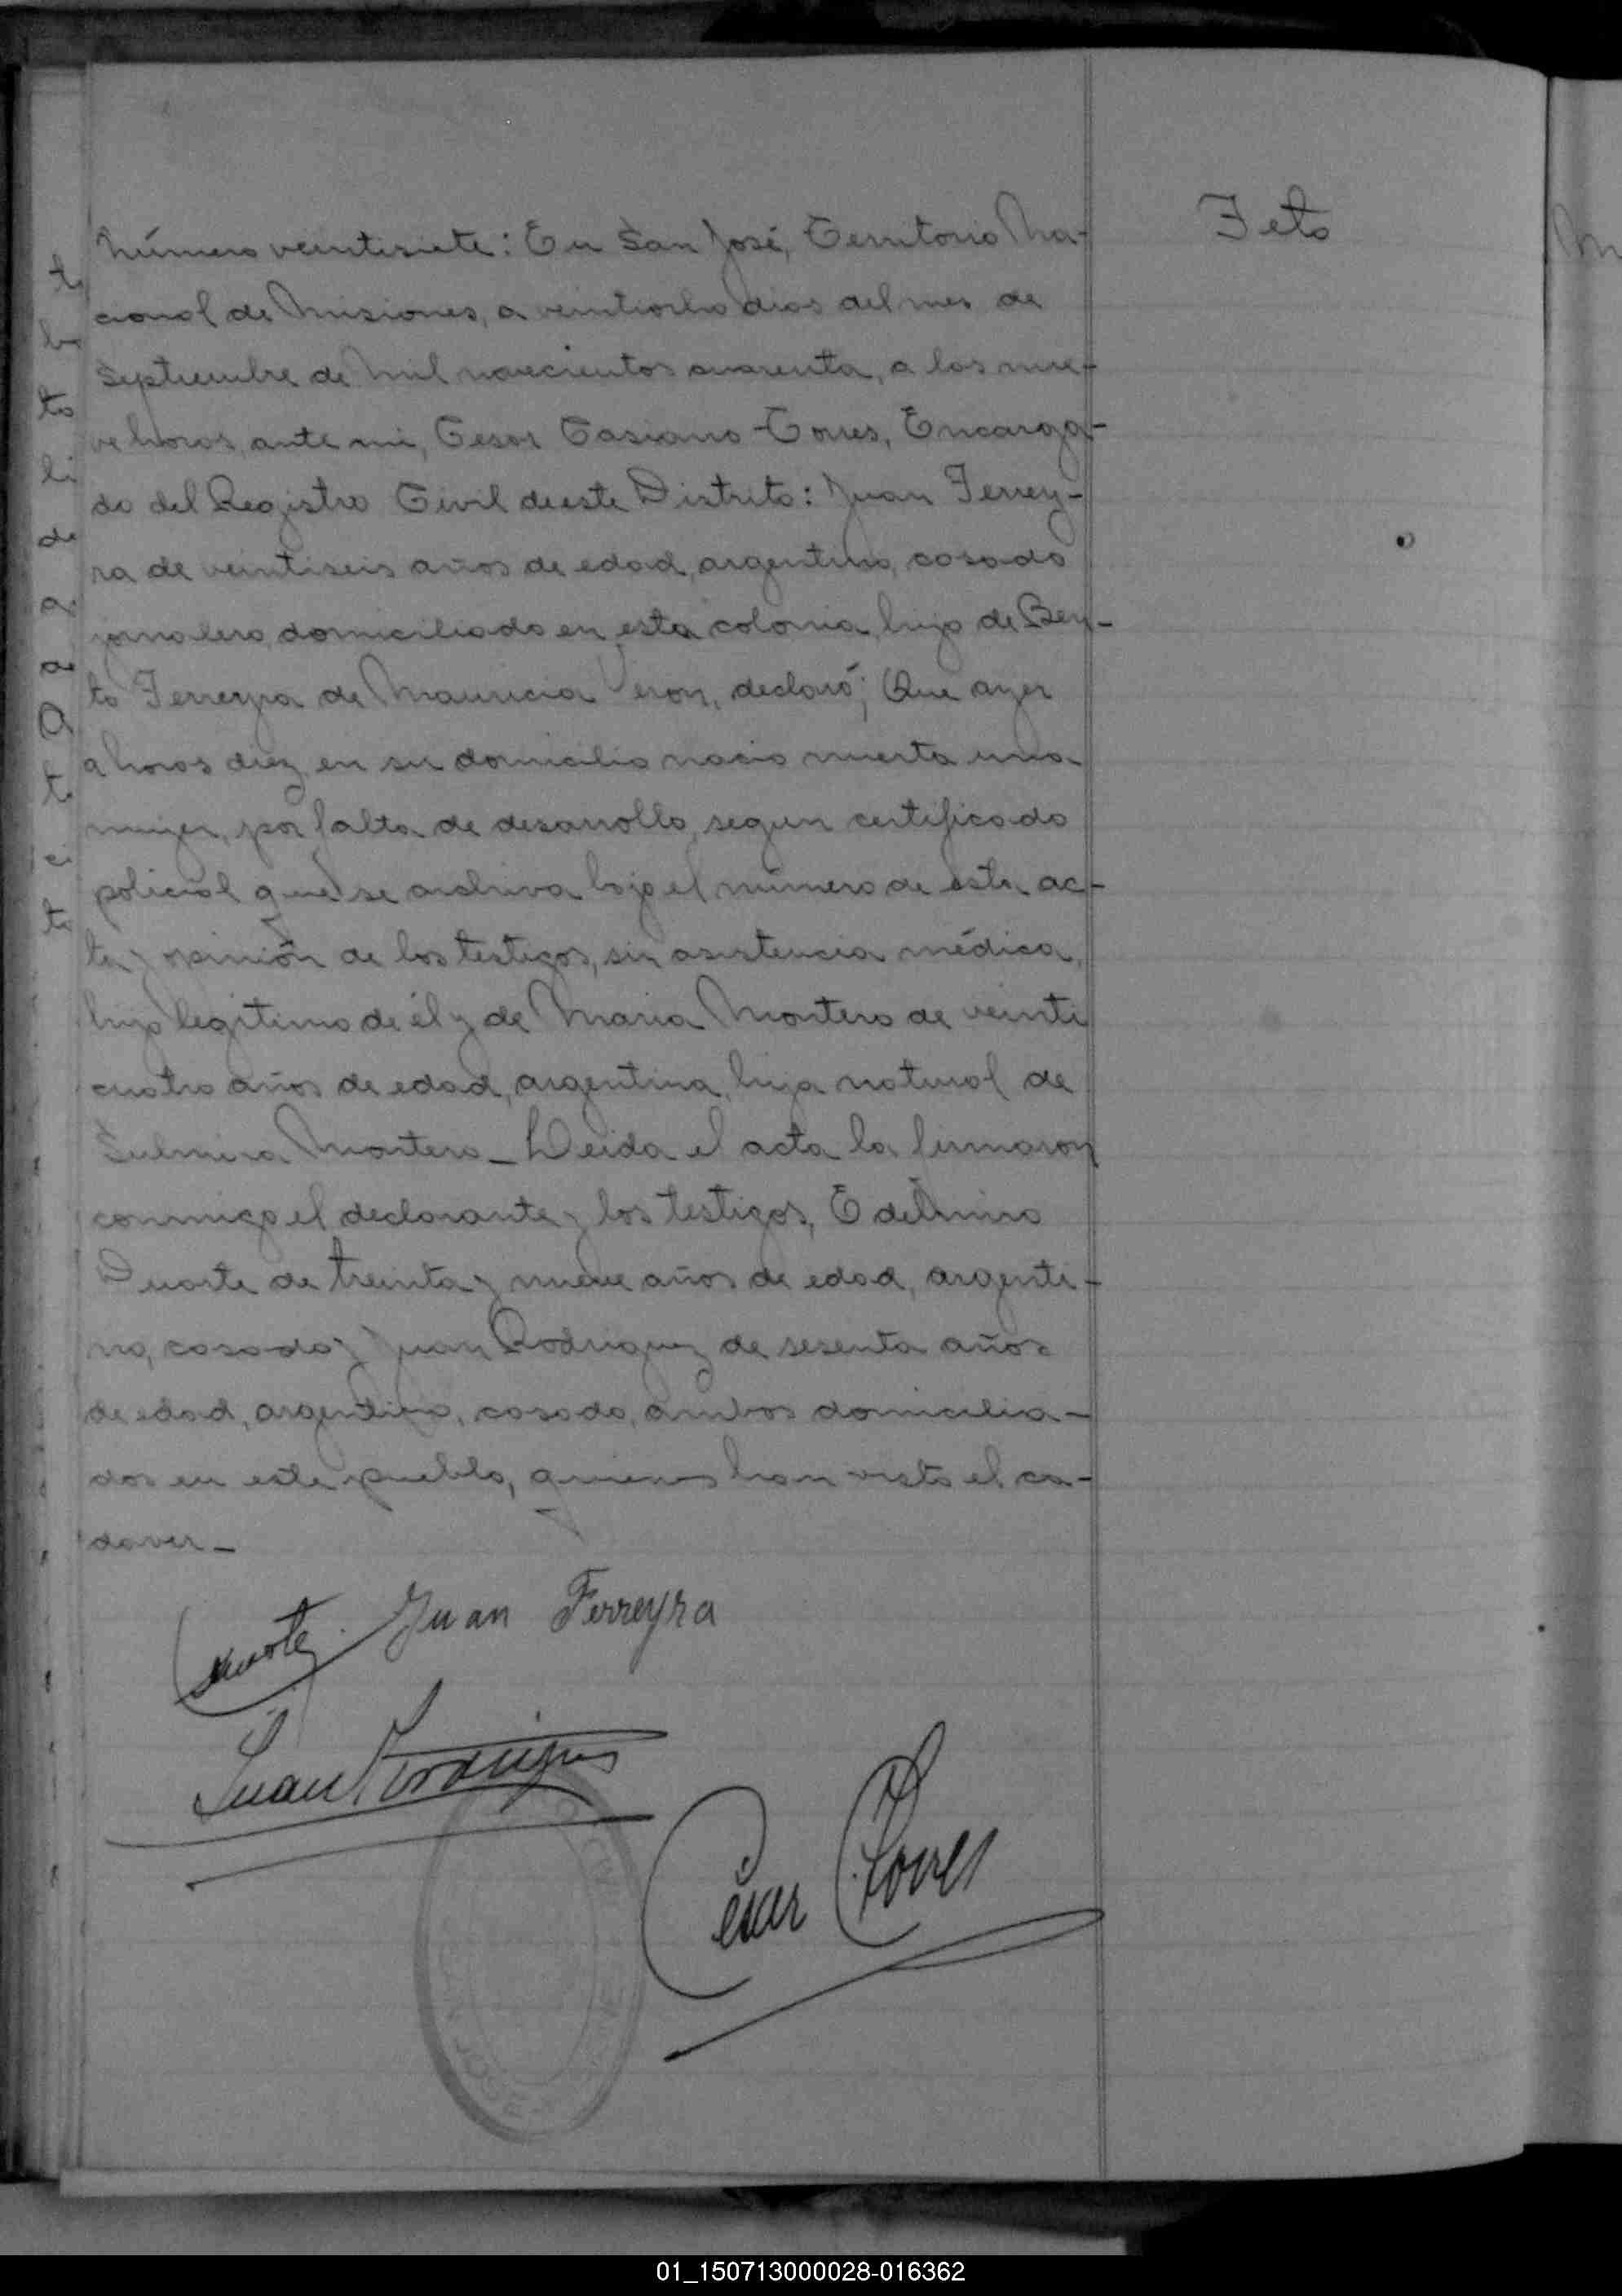 Feto
Número veintisiete: En San José, Territorio Na-
cional de Misiones, a veintiocho dias del mes de
Septiembre de mil novecientos cuarenta, a las nue-
ve horas, ante mi, Cesar Casiano Torres, Encarga-
do del Registro Civil de este Distrito: Juan Ferrey-
ra de veintiseis años de edad, argentino, casado
jornalero, domiciliado en esta colonia, hijo de Beni-
to Ferreyra de Mauricia Veron, declaró; Que ayer
a horas diez en su domicilio nació muerta una
mujer, por falta de desarrollo, segun certificado
policial que se archiva bajo el número de esta ac-
ta y opinión de los testigos, sin asistencia médica,
hijo legitimo de él y de Maria Montero de veinti
cuatro años de edad, argentina, hija natural de
Montero_ Leida el acta la firmaron
conmigo el declarante y los testigos, Edelmiro
Duarte de treinta y nueve años de edad, argenti-
no, casado y Juan Rodriguez de sesenta años
de edad, argentino, casado, ambos domicilia-
dos en este pueblo, quienes han visto el ca-
daver_
Duarte Juan Ferreyra
Juan Rodrigues
César Torres
01_150713000028-016362